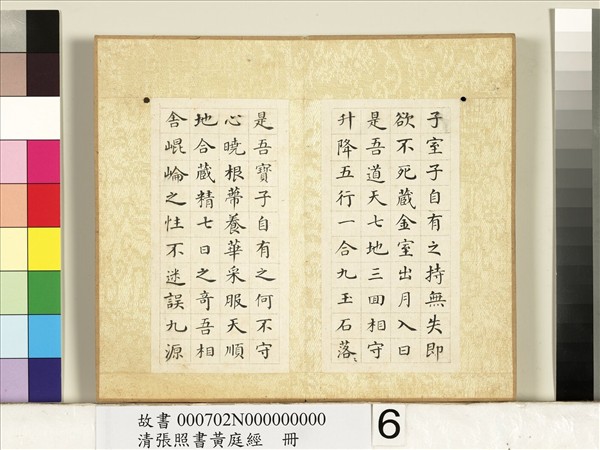 子室子自有之持無失即
欲不死藏金室出月入日
是吾道天七地三回相守
升降五行一合九玉石落〻
是吾寶子自有之何不守
心曉根蒂養華采服天順
地合藏精七日之奇吾相
舍崐崘之性不迷誤九源
故書 000702N000000000
清張照書黃庭經 冊
6